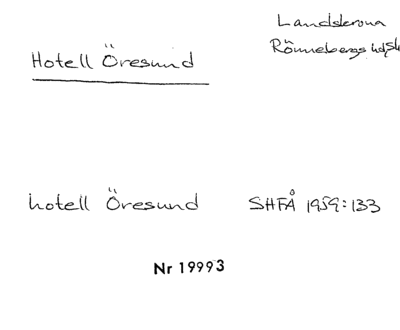 Landskrona
Rönnebergs hd, Sk
Hotell Öresund
hotell Öresund SHFÅ 1959:133
Nr 19993